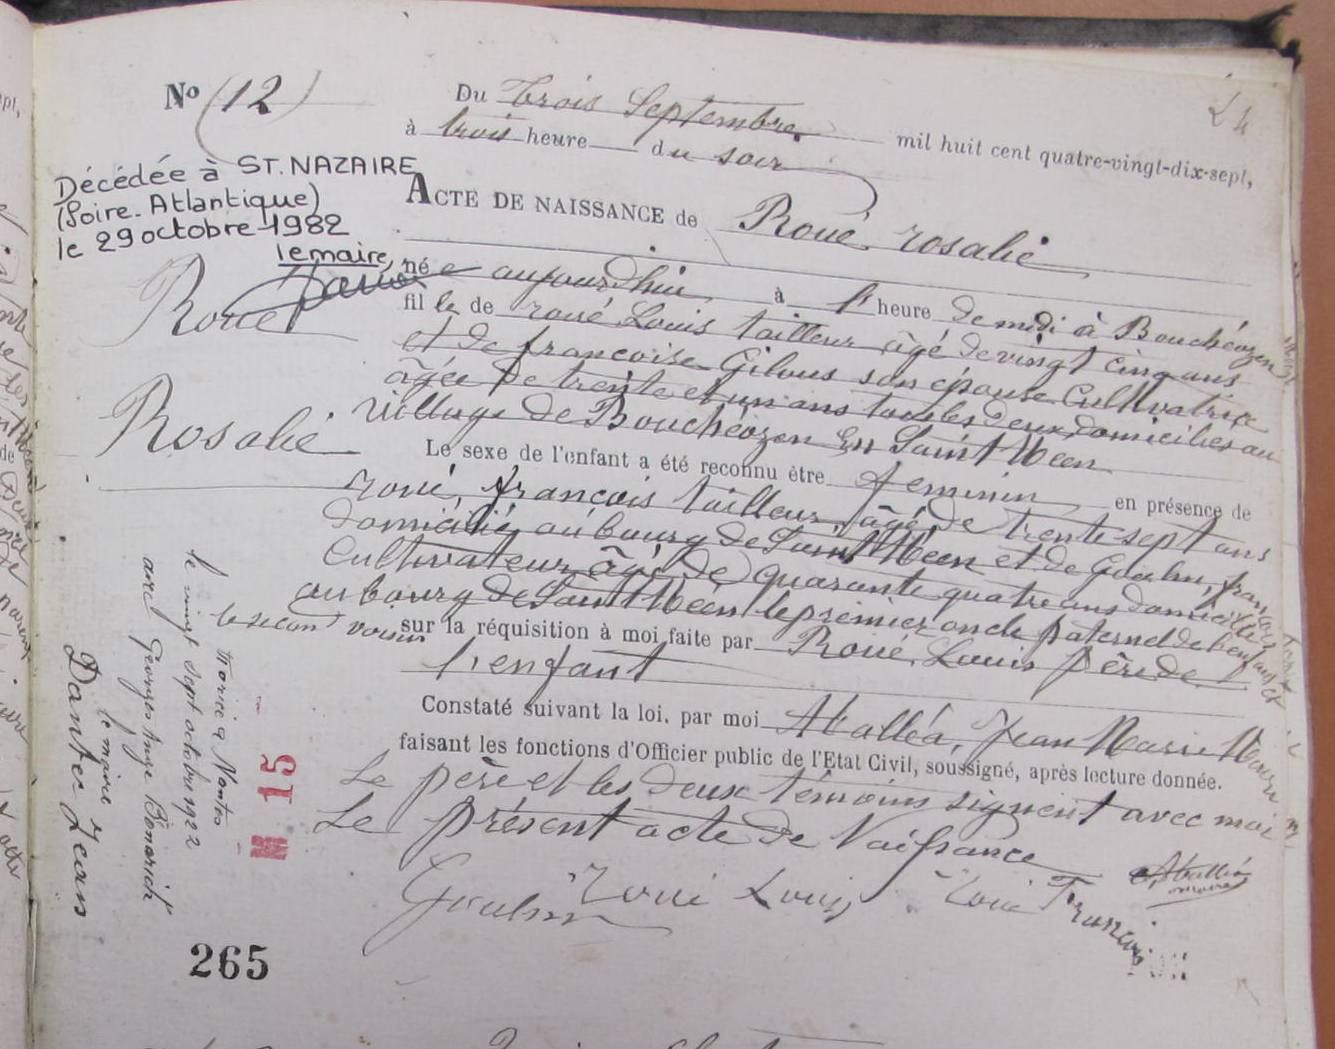 24
No (12)
Du trois Septembre mil huit cent quatre-vingt-dix-sept,
à trois heure du soir
ACTE DE NAISSANCE de Roué rosalie
née aujourd'hui à 1 heure de midi à Bouchéozen
fille de roué Louis tailleur âgé de vingt cinq ans
et de françoise son épouse Cultivatrice
âgée de trente et un ans tous les deux domiciliés au
village de Bouchéozen En Saint Méen
Le sexe de l'enfant a été reconnu être feminin en présence de
roué, françois tailleur, âgé de trente-sept ans
domicilié au bourg de Saint Méen et de
Cultivateur âgé de quarante quatre ans domicilié
au bourg de Saint Méen le premier oncle paternel de l'enfant et
le second voisin
sur la réquisition à moi faite par Roué, Louis père de
l'enfant
Constaté suivant la loi, par moi Aballéa, Jean Marie Maire
faisant les fonctions d'Officier public de l'Etat Civil, soussigné, après lecture donnée.
Le père et les deux témoins signent avec moi
Le présent acte de Naissance
Aballéa
maire
roué Louis roué François
Décédée à ST. NAZAIRE
(Loire-Atlantique)
le 29 octobre 1982
le maire,
Roué
Rosalie
Mariée à Nantes
le vingt sept octobre 1922
avec Georges Ange
le maire
Dantec Jean
M 15
265